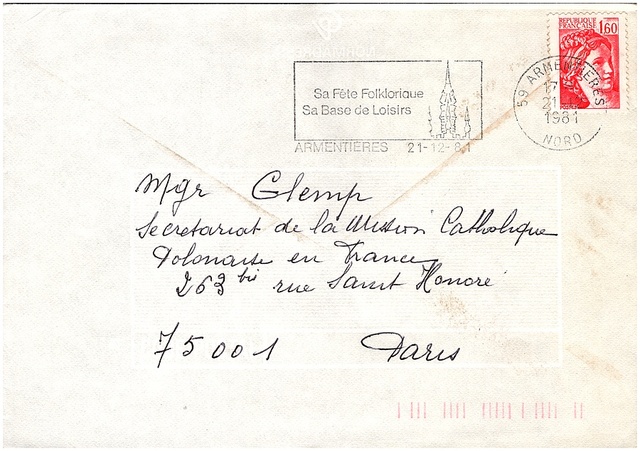 REPUBLIQUE
FRANCAISE 1,60
Sa Fête Folklorique
Sa Base de Loisirs
ARMENTIERES 21-12-81
59 ARMENTIERES
17
21
1981
NORD
Mgr Glemp
Secretariat de la Mission Catholique
Polonaise en France
263 bis rue Saint Honoré
75001 Paris